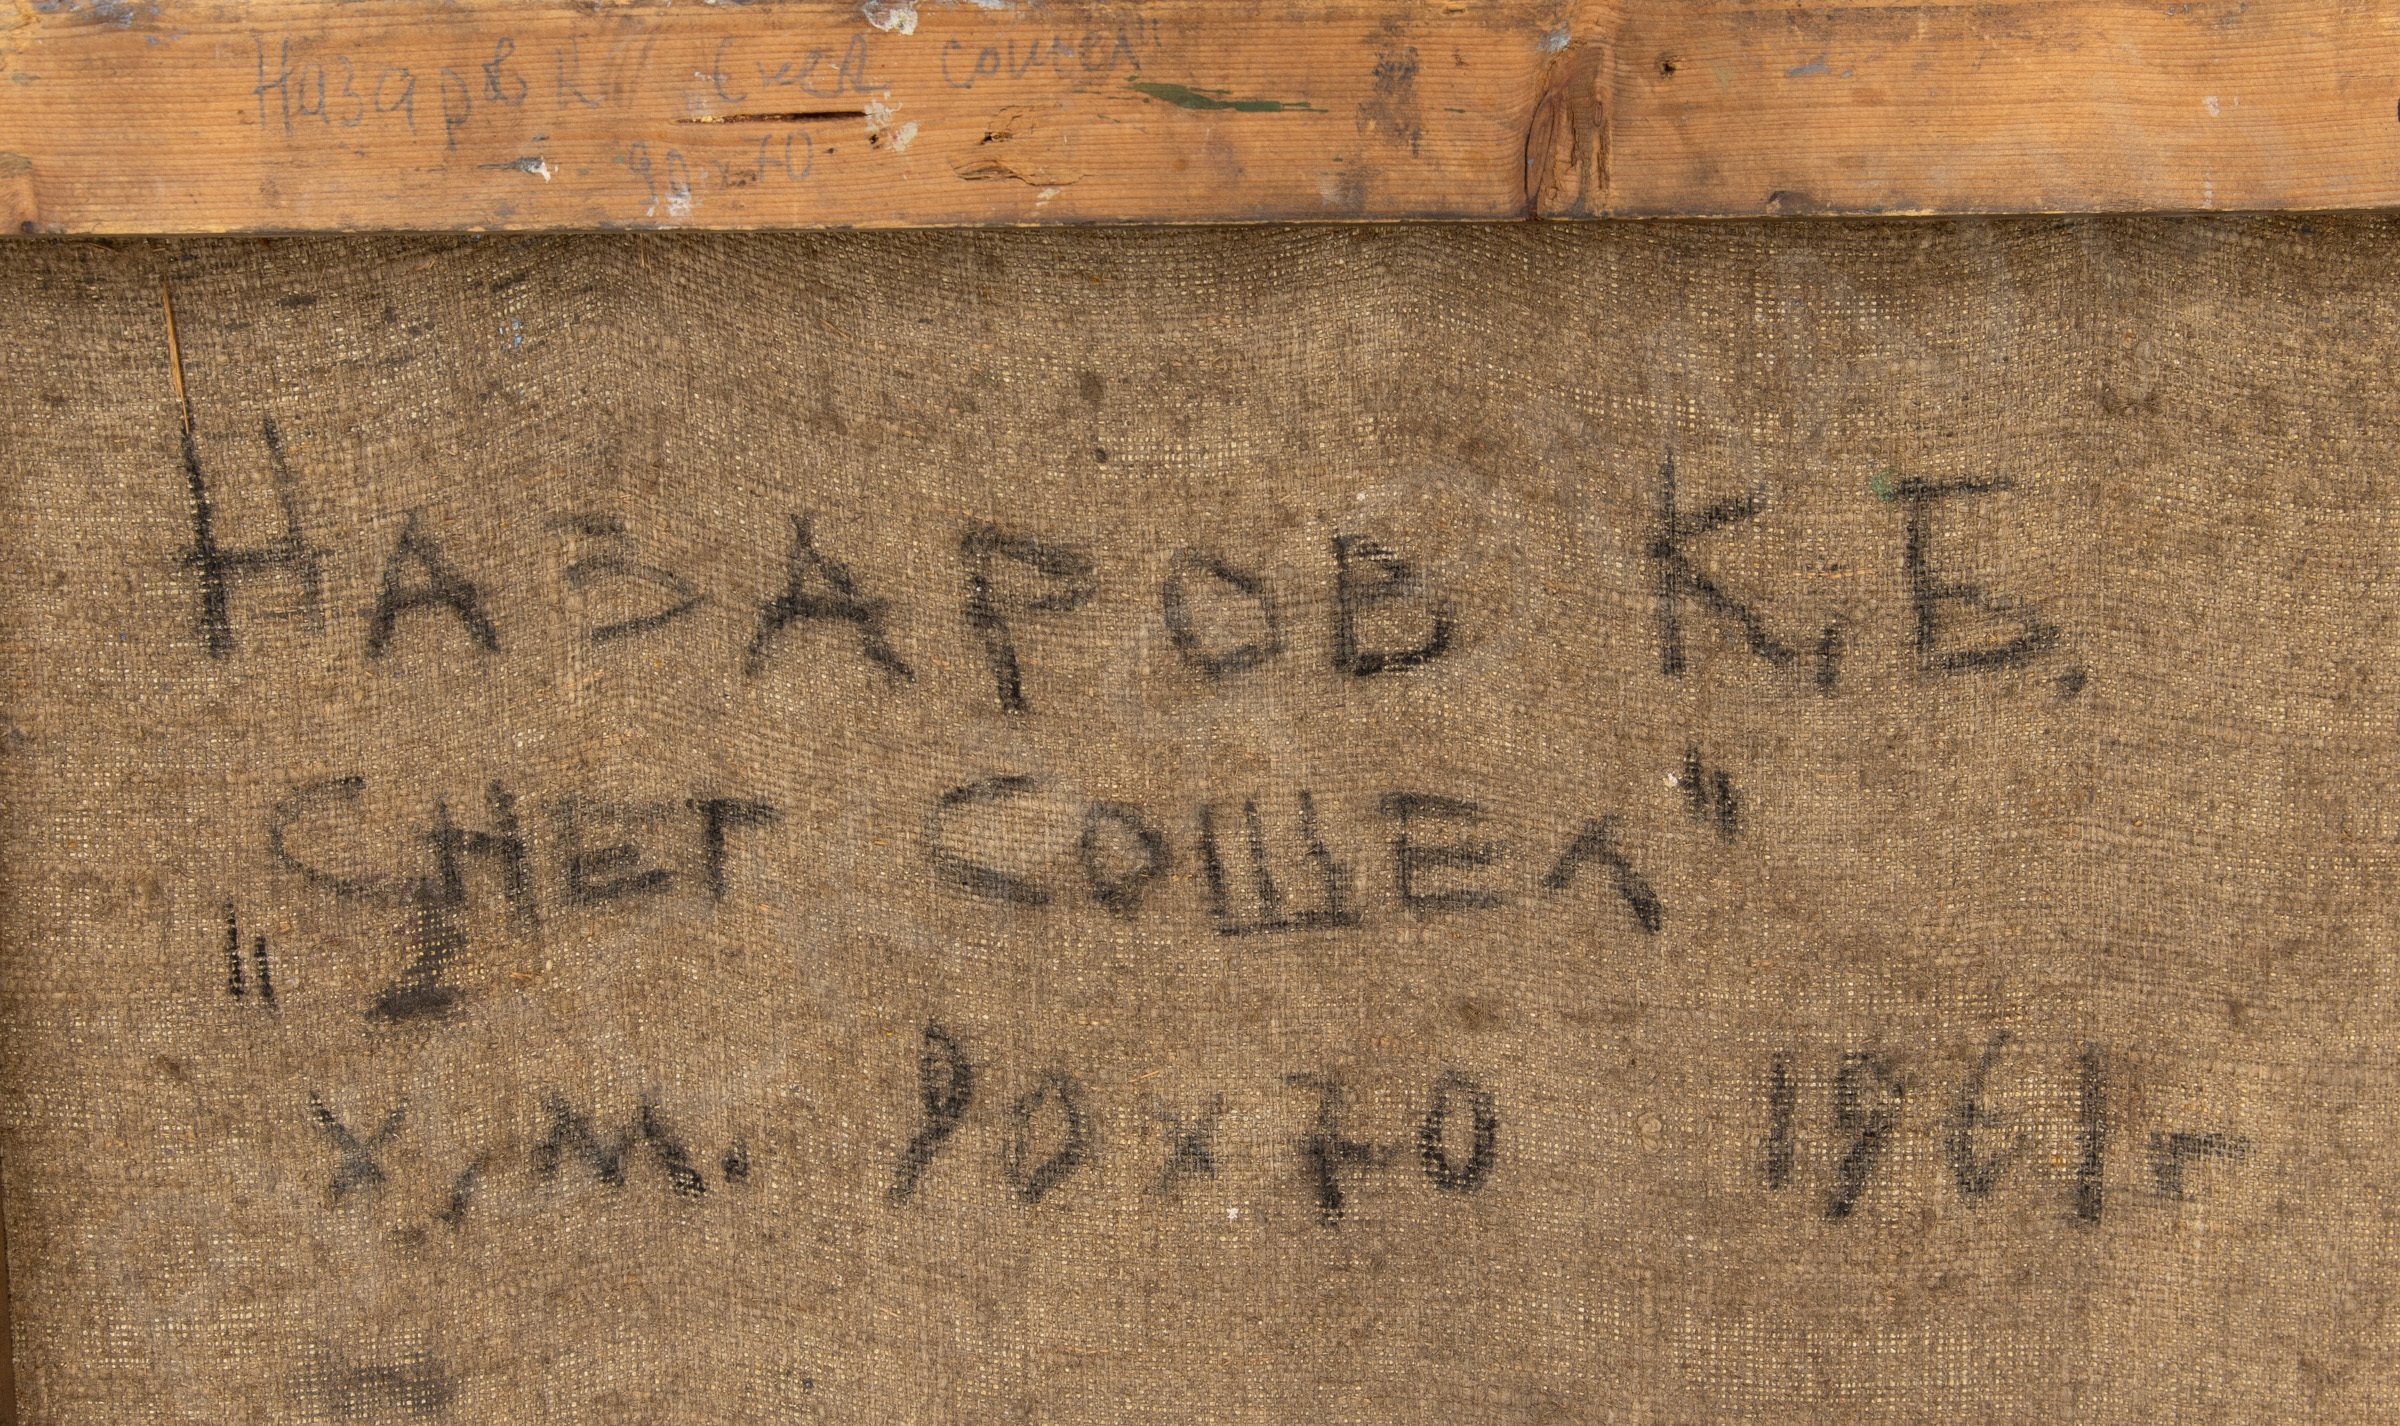 Назаров К "Снег сошел"
90x70
НАЗАРОВ К. Б.
"СНЕГ СОШЕЛ"
х.м. 90x70 1961 г